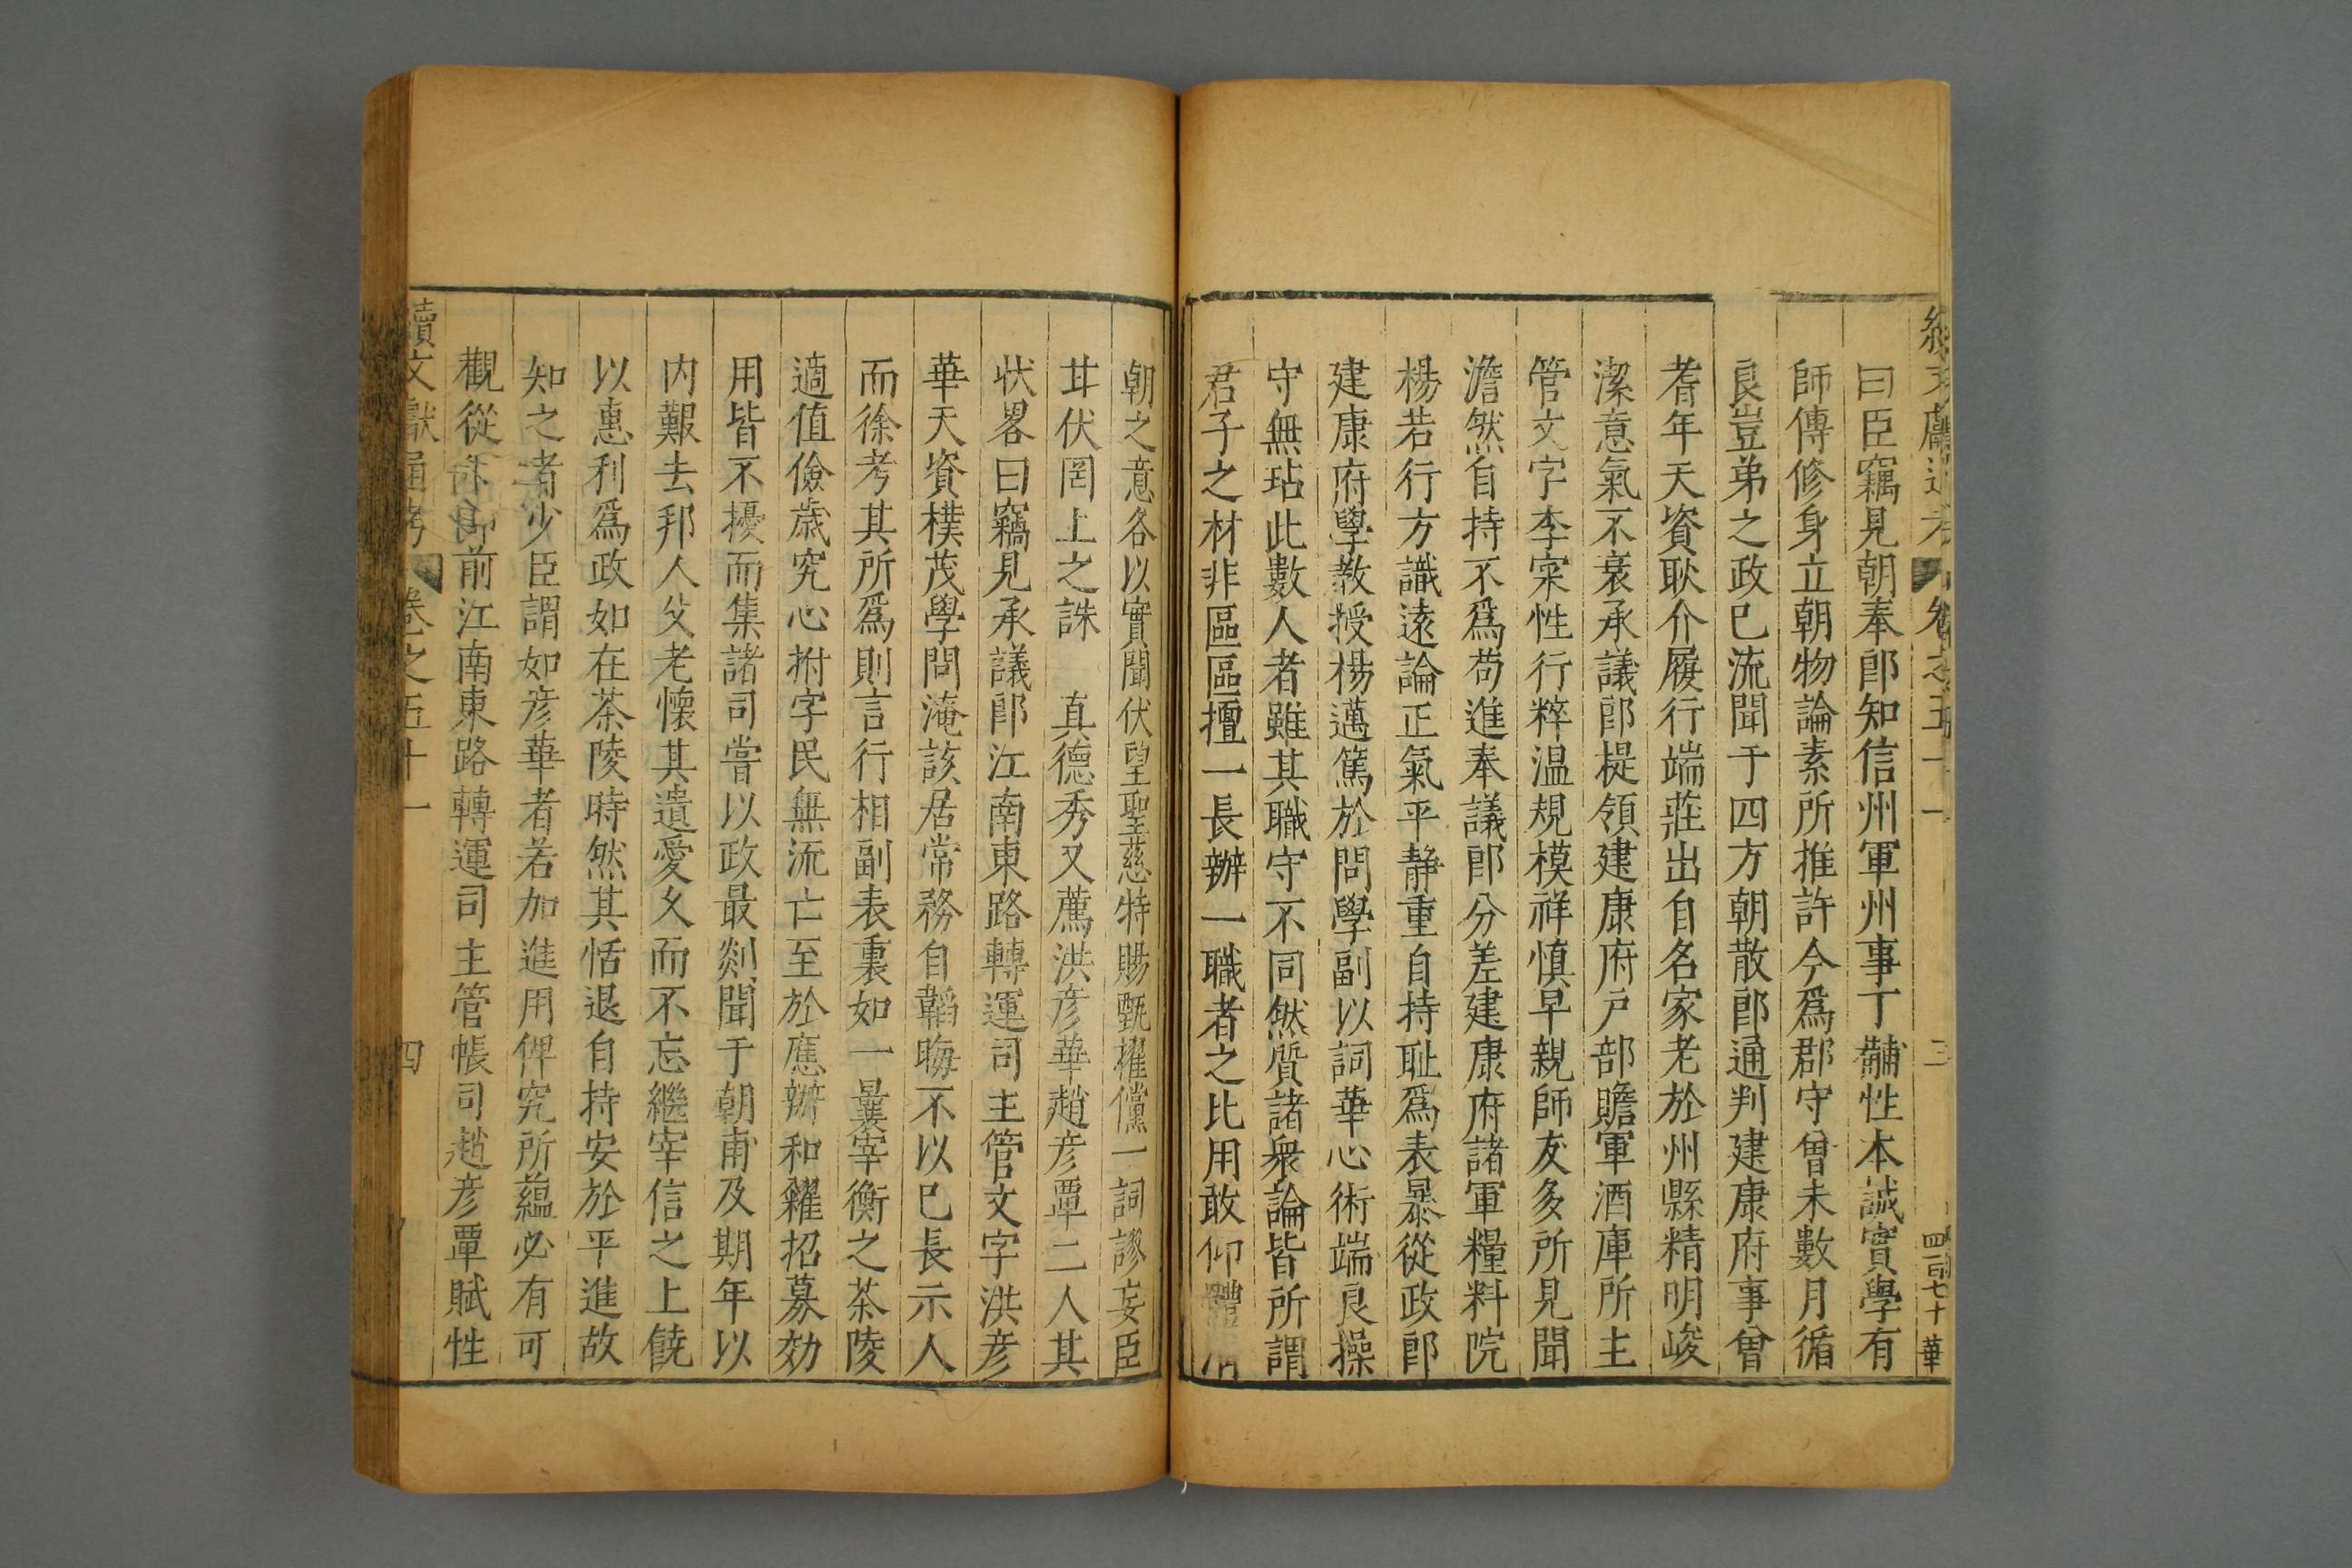 續文獻通考 卷之五十一 三 四百七十 華
曰臣竊見朝奉郎知信州軍州事丁黼性本誠實學有
師傳修身立朝物論素所推許今爲郡守曾未數月循
良豈弟之政已流聞于四方朝散郎通判建康府事曾
耆年天資耿介履行端莊出自名家老於州縣精明峻
潔意氣不衰承議郎提領建康府戶部贍軍酒庫所主
管文字李宷性行粹温規模祥慎早親師友多所見聞
澹然自持不爲苟進奉議郎分差建康府諸軍糧料院
楊若行方識遠論正氣平静重自持耻爲表暴從政郎
建康府學教授楊邁篤於問學副以詞華心術端良操
守無玷此數人者雖其職守不同然質諸衆論皆所謂
君子之材非區區擅一長辦一職者之比用敢仰體清
朝之意各以實聞伏望聖慈特賜甄擢儻一詞謬妄臣
甘伏罔上之誅 真德秀又薦洪彦華趙彦覃二人其
狀畧曰竊見承議郎江南東路轉運司主管文字洪彦
華天資樸茂學問淹該居常務自韜晦不以已長示人
而徐考其所爲則言行相副表裏如一曩宰衡之茶陵
適值儉歲究心拊字民無流亡至於應辦和糴招募効
用皆不擾而集諸司嘗以政最剡聞于朝甫及期年以
内艱去邦人父老懷其遺愛久而不忘繼宰信之上饒
以惠利爲政如在茶陵時然其恬退自持安於平進故
知之者少臣謂如彦華者若加進用俾究所蘊必有可
觀從郎前江南東路轉運司主管帳司趙彦覃賦性
續文獻通考 卷之五十一 四